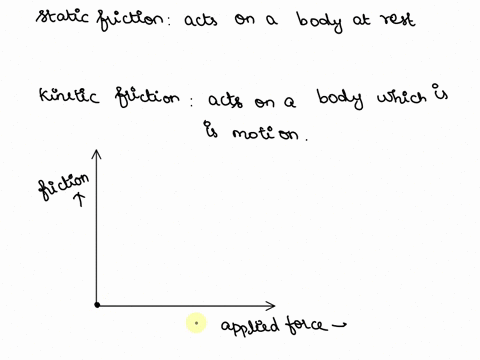 static friction: acts on a body at rest
kinetic friction: acts on a body which is
is motion.
friction
applied force